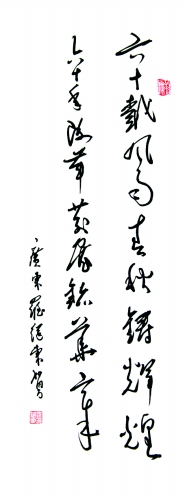 六十载风雨春秋铸辉煌
六十年改革发展铭华章
广东罗绍东贺